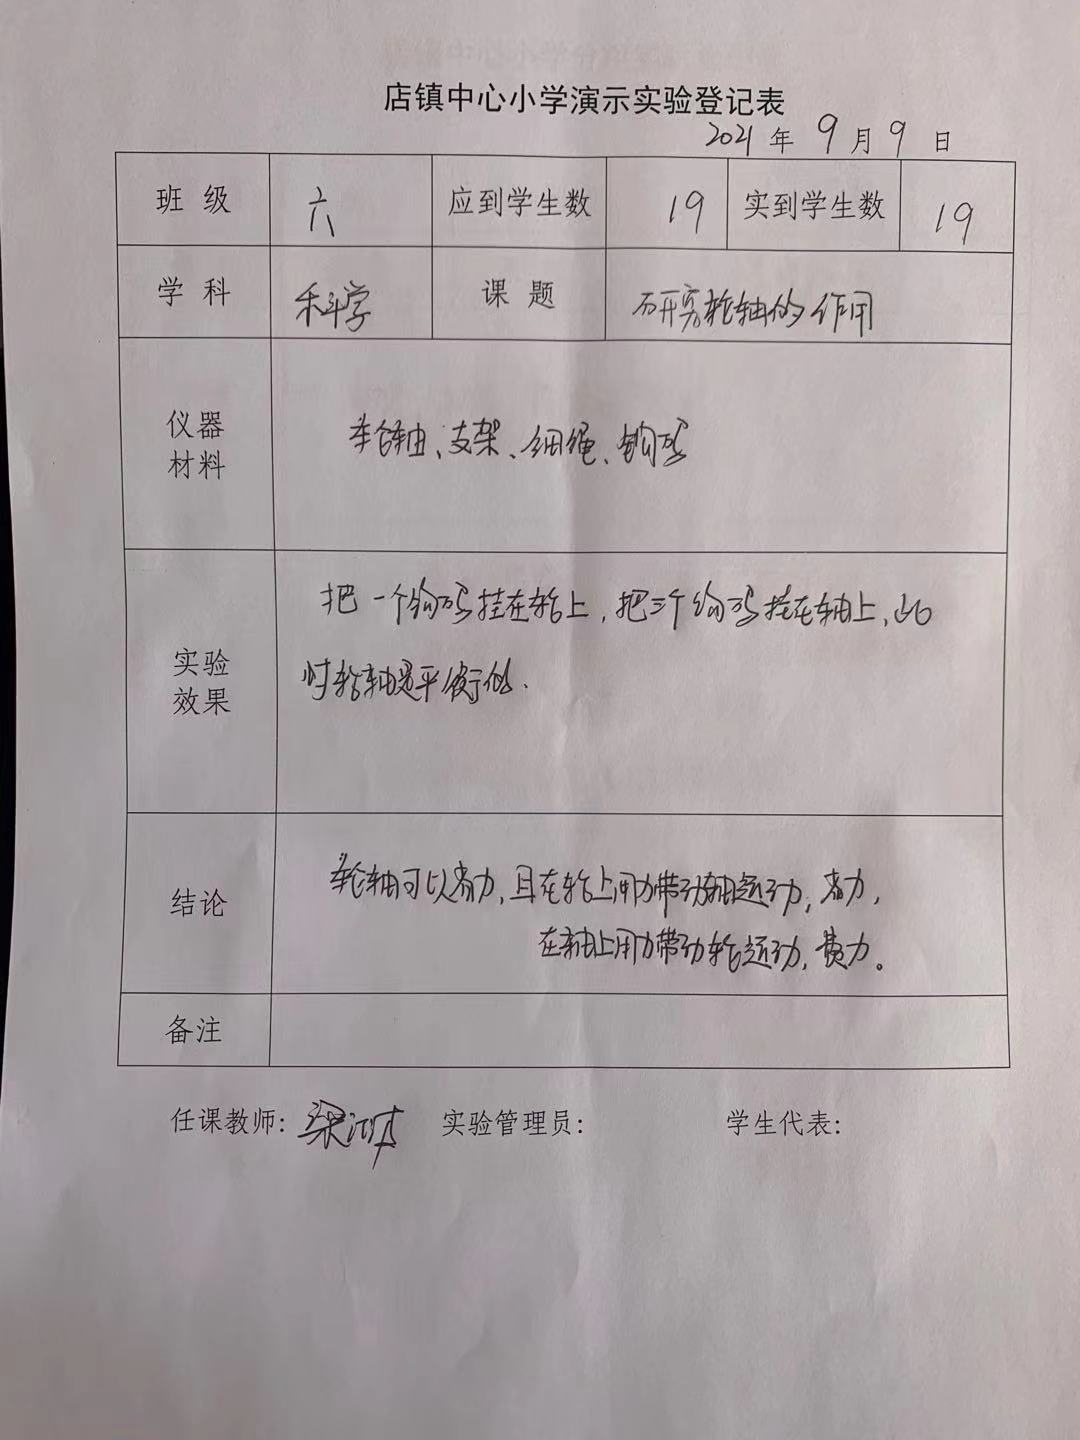 店镇中心小学演示实验登记表
2021 年 9 月 9 日
班 级 六 应到学生数 19 实到学生数 19
学 科 科学 课 题 研究轮轴的作用
仪器
材料
轮轴、支架、细绳、钩码
实验
效果
把一个钩码挂在轮上,把三个钩码挂在轴上,此
时轮轴是平衡的.
结论
轮轴可以省力,且在轮上用力带动轴运动,省力,
在轴上用力带动轮运动,费力。
备注
任课教师: 梁 实验管理员: 学生代表: